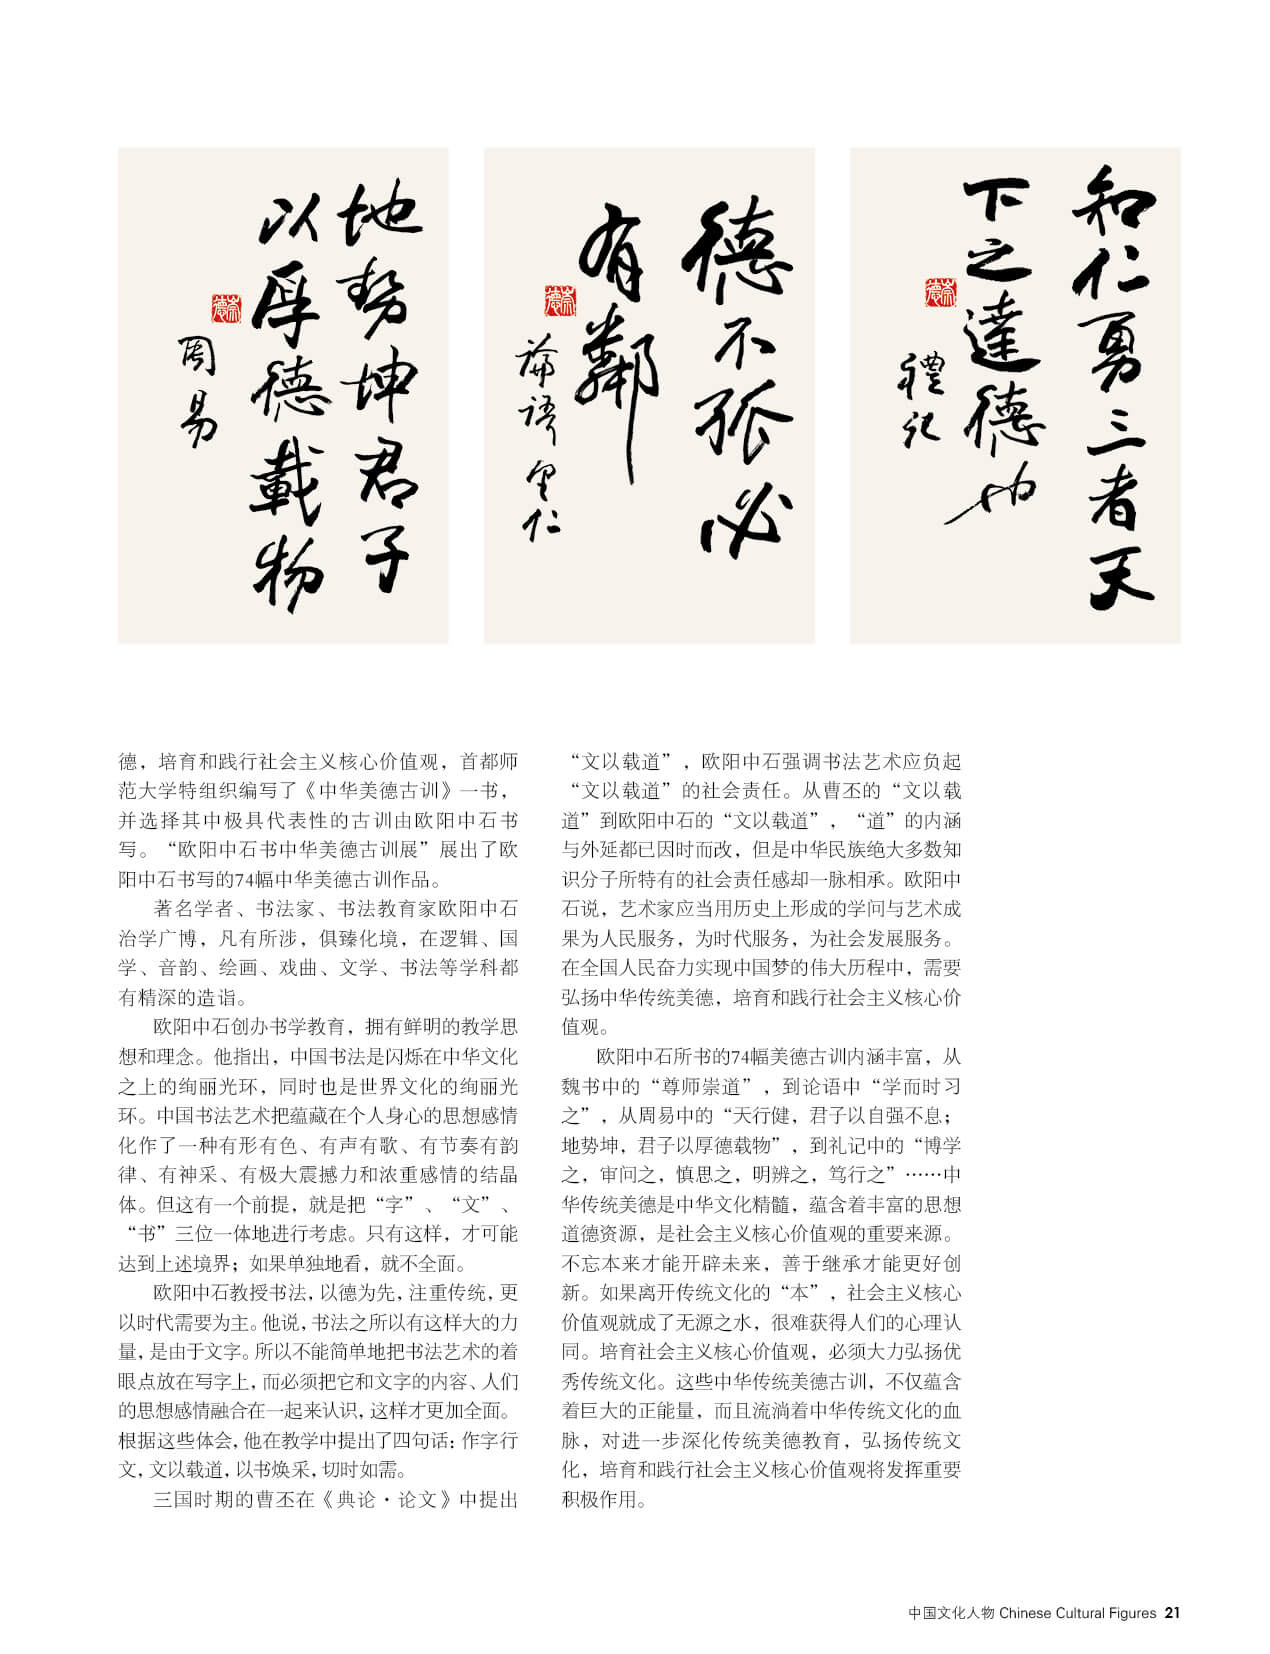 地势坤君子
以厚德載物
周易
崇德
德不孤必
有鄰
論語里仁
崇德
知仁勇三者天
下之達德也
禮記
崇德
德，培育和践行社会主义核心价值观，首都师
范大学特组织编写了《中华美德古训》一书，
并选择其中极具代表性的古训由欧阳中石书
写。“欧阳中石书中华美德古训展”展出了欧
阳中石书写的74幅中华美德古训作品。
著名学者、书法家、书法教育家欧阳中石
治学广博，凡有所涉，俱臻化境，在逻辑、国
学、音韵、绘画、戏曲、文学、书法等学科都
有精深的造诣。
欧阳中石创办书学教育，拥有鲜明的教学思
想和理念。他指出，中国书法是闪烁在中华文化
之上的绚丽光环，同时也是世界文化的绚丽光
环。中国书法艺术把蕴藏在个人身心的思想感情
化作了一种有形有色、有声有歌、有节奏有韵
律、有神采、有极大震撼力和浓重感情的结晶
体。但这有一个前提，就是把“字”、“文”、
“书”三位一体地进行考虑。只有这样，才可能
达到上述境界；如果单独地看，就不全面。
欧阳中石教授书法，以德为先，注重传统，更
以时代需要为主。他说，书法之所以有这样大的力
量，是由于文字。所以不能简单地把书法艺术的着
眼点放在写字上，而必须把它和文字的内容、人们
的思想感情融合在一起来认识，这样才更加全面。
根据这些体会，他在教学中提出了四句话：作字行
文，文以载道，以书焕采，切时如需。
三国时期的曹丕在《典论·论文》中提出
“文以载道”，欧阳中石强调书法艺术应负起
“文以载道”的社会责任。从曹丕的“文以载
道”到欧阳中石的“文以载道”，“道”的内涵
与外延都已因时而改，但是中华民族绝大多数知
识分子所特有的社会责任感却一脉相承。欧阳中
石说，艺术家应当用历史上形成的学问与艺术成
果为人民服务，为时代服务，为社会发展服务。
在全国人民奋力实现中国梦的伟大历程中，需要
弘扬中华传统美德，培育和践行社会主义核心价
值观。
欧阳中石所书的74幅美德古训内涵丰富，从
魏书中的“尊师崇道”，到论语中“学而时习
之”，从周易中的“天行健，君子以自强不息；
地势坤，君子以厚德载物”，到礼记中的“博学
之，审问之，慎思之，明辨之，笃行之”……中
华传统美德是中华文化精髓，蕴含着丰富的思想
道德资源，是社会主义核心价值观的重要来源。
不忘本来才能开辟未来，善于继承才能更好创
新。如果离开传统文化的“本”，社会主义核心
价值观就成了无源之水，很难获得人们的心理认
同。培育社会主义核心价值观，必须大力弘扬优
秀传统文化。这些中华传统美德古训，不仅蕴含
着巨大的正能量，而且流淌着中华传统文化的血
脉，对进一步深化传统美德教育，弘扬传统文
化，培育和践行社会主义核心价值观将发挥重要
积极作用。
中国文化人物 Chinese Cultural Figures 21